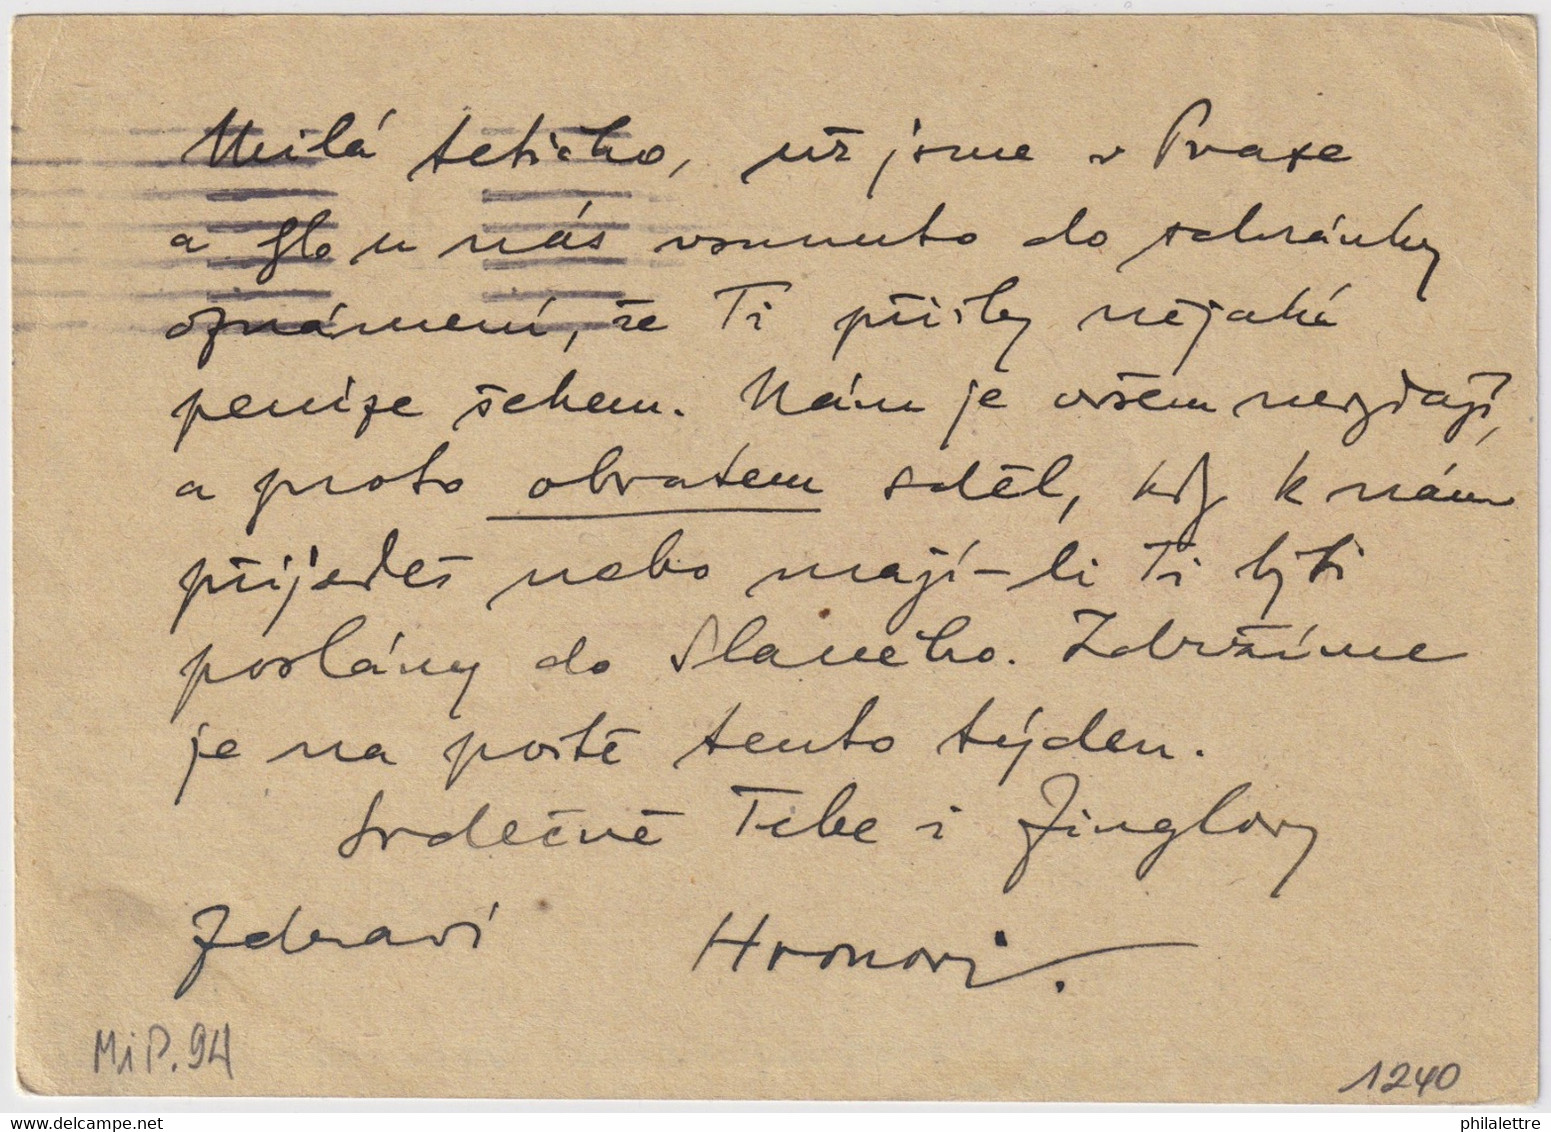 Milá tetičko, už jsme v Praze
a u nás vsunuto do schránky
oznámení, že Ti přišly nějaké
peníze šekem. Nám je ovšem nevydají,
a proto obratem sděl, kdy k nám
přijedeš nebo mají-li Ti býti
poslány do Slaného. Zdržíme
je na poště tento týden.
Srdečně Tebe i Zinglovy
zdraví Hronovi.
MiP.94
1240
philalettre